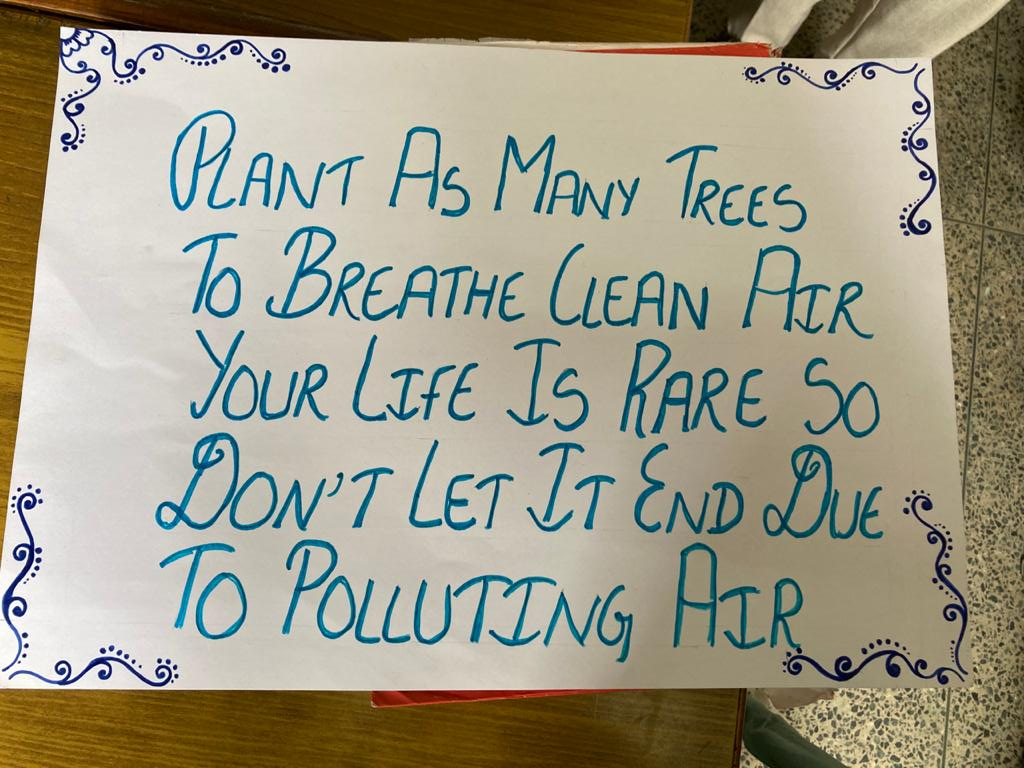 PLANT AS MANY TREES
TO BREATHE CLEAN AIR
YOUR LIFE IS RARE SO
DON'T LET IT END DUE
TO POLLUTING AIR